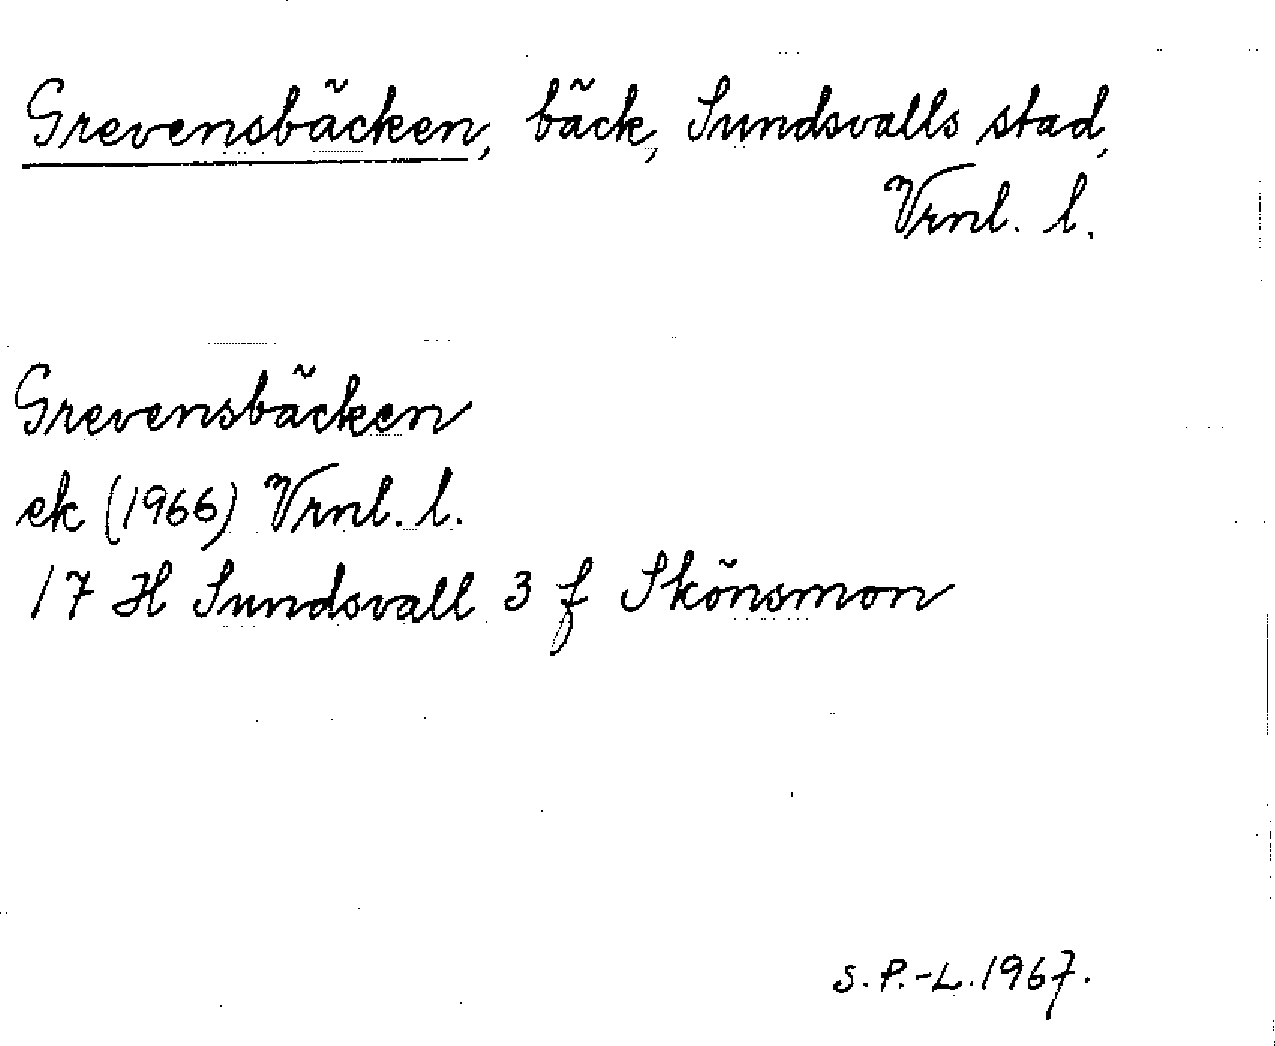 Grevensbäcken, bäck, Sundsvalls stad,
Vrnl. l.
Grevensbäcken
ek (1966) Vrnl. l.
17 H Sundsvall 3 f Skönsmon
S. P.-L. 1967.